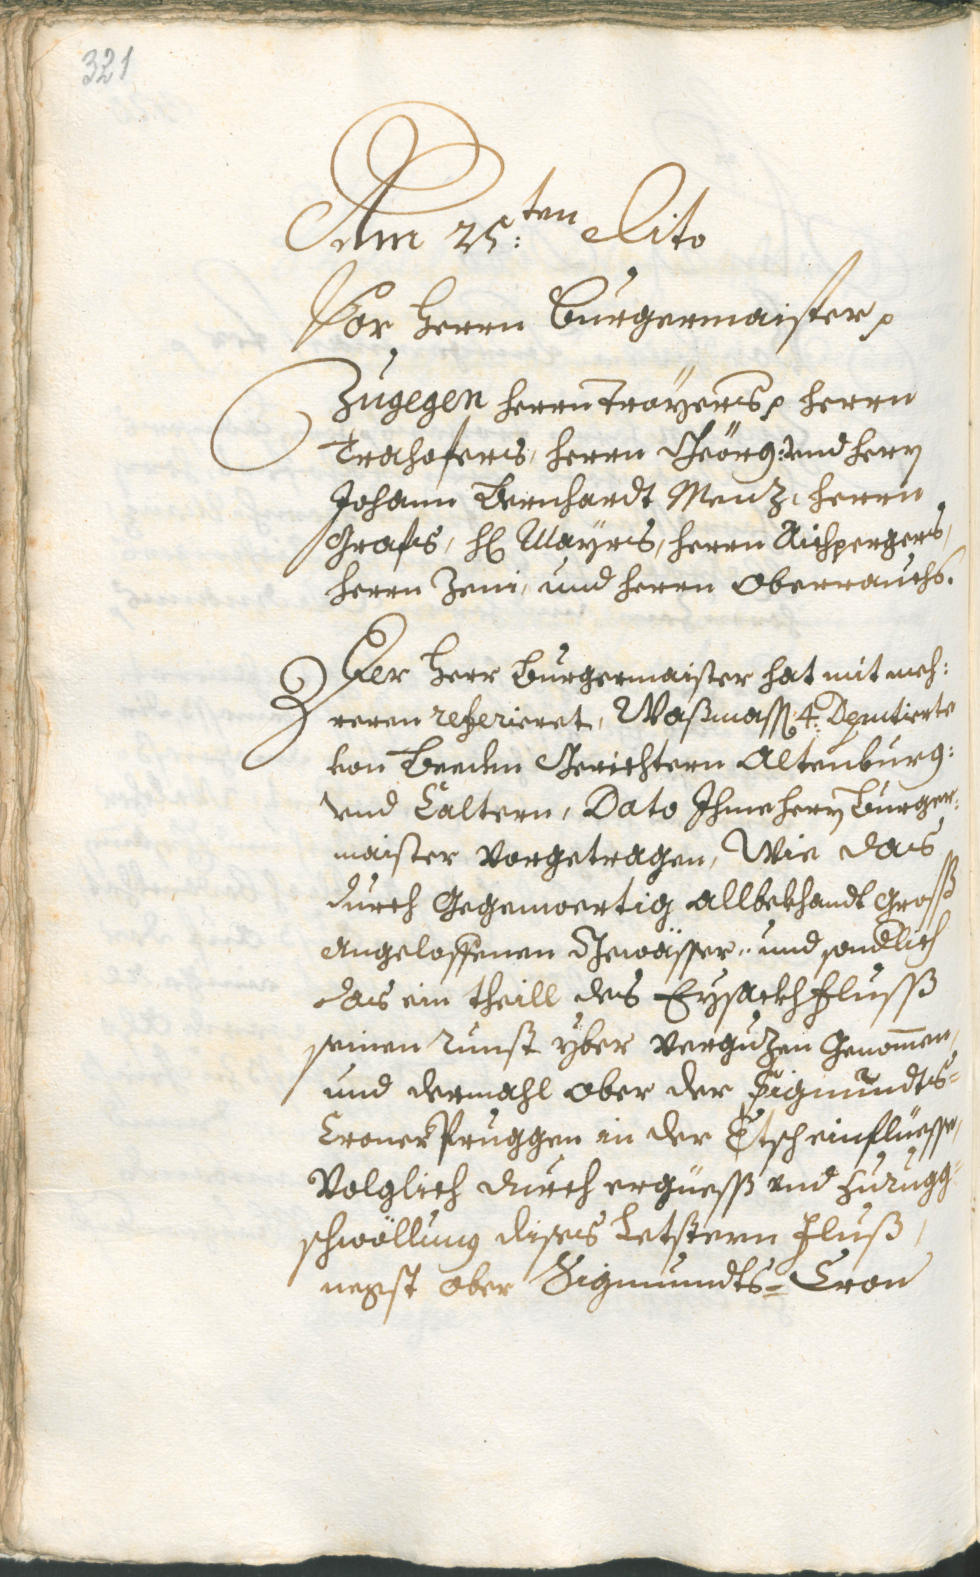 321
Am 25:ten Dito
Vor Herrn Burgermaister p
Zugegen herrn Troyers p herrn
Trahofers, herrn Geörg: und herrn
Johann Bernhardt Menz, herrn
Grafs, H: Mayrs, herrn Aichpergers,
herrn Zeni, und herrn Oberrauchs.
Der Herr Burgermaister hat mit meh:
reren referieret, Waßmass 4: Deputierte
von Beeden Gerichtern Altenburg:
und Caltern, Dato Ihme herrn Burger:
maister vorgetragen, Wie das
durch Gegenwertig allbekhandt Groß
angeloffenen Gewässer, und sondlich
das ein theill des Eysackhfluss
seinen Runst yber Verguzen Genommen,
und dermahl ober der Sigmundts-
Croner Pruggen in der Etsch einflüesse,
Volglich durch ergüess und Zurugg-
schwöllung dises Letstern Fluß,
negst ober Sigmundts-Cron